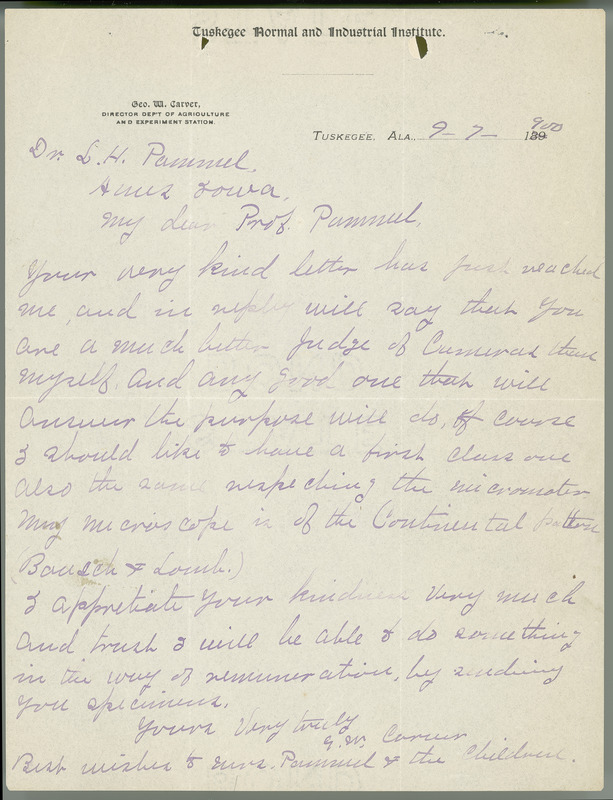 Tuskegee Normal and Industrial Institute.
Geo. W. Carver,
DIRECTOR DEP'T OF AGRICULTURE
AND EXPERIMENT STATION.
TUSKEGEE, ALA., 9-7- 1900
Dr. L. H. Pammel,
Ames Iowa,
My dear Prof. Pammel,
Your very kind letter has just reached
me, and in reply will say that you
are a much better Judge of Cameras than
myself, and any good one that will
answer the purpose will do, of course
I should like to have a first class one
also the same respecting the micrometer
my microscope is of the Continental pattern
(Bausch & Lomb.)
I appretiate your kindness very much
and trust I will be able to do something
in the way of remuneration, by sending
you specimens.
Yours Very truly
G. W. Carver
Best wishes to Mrs. Pammel & the Children.